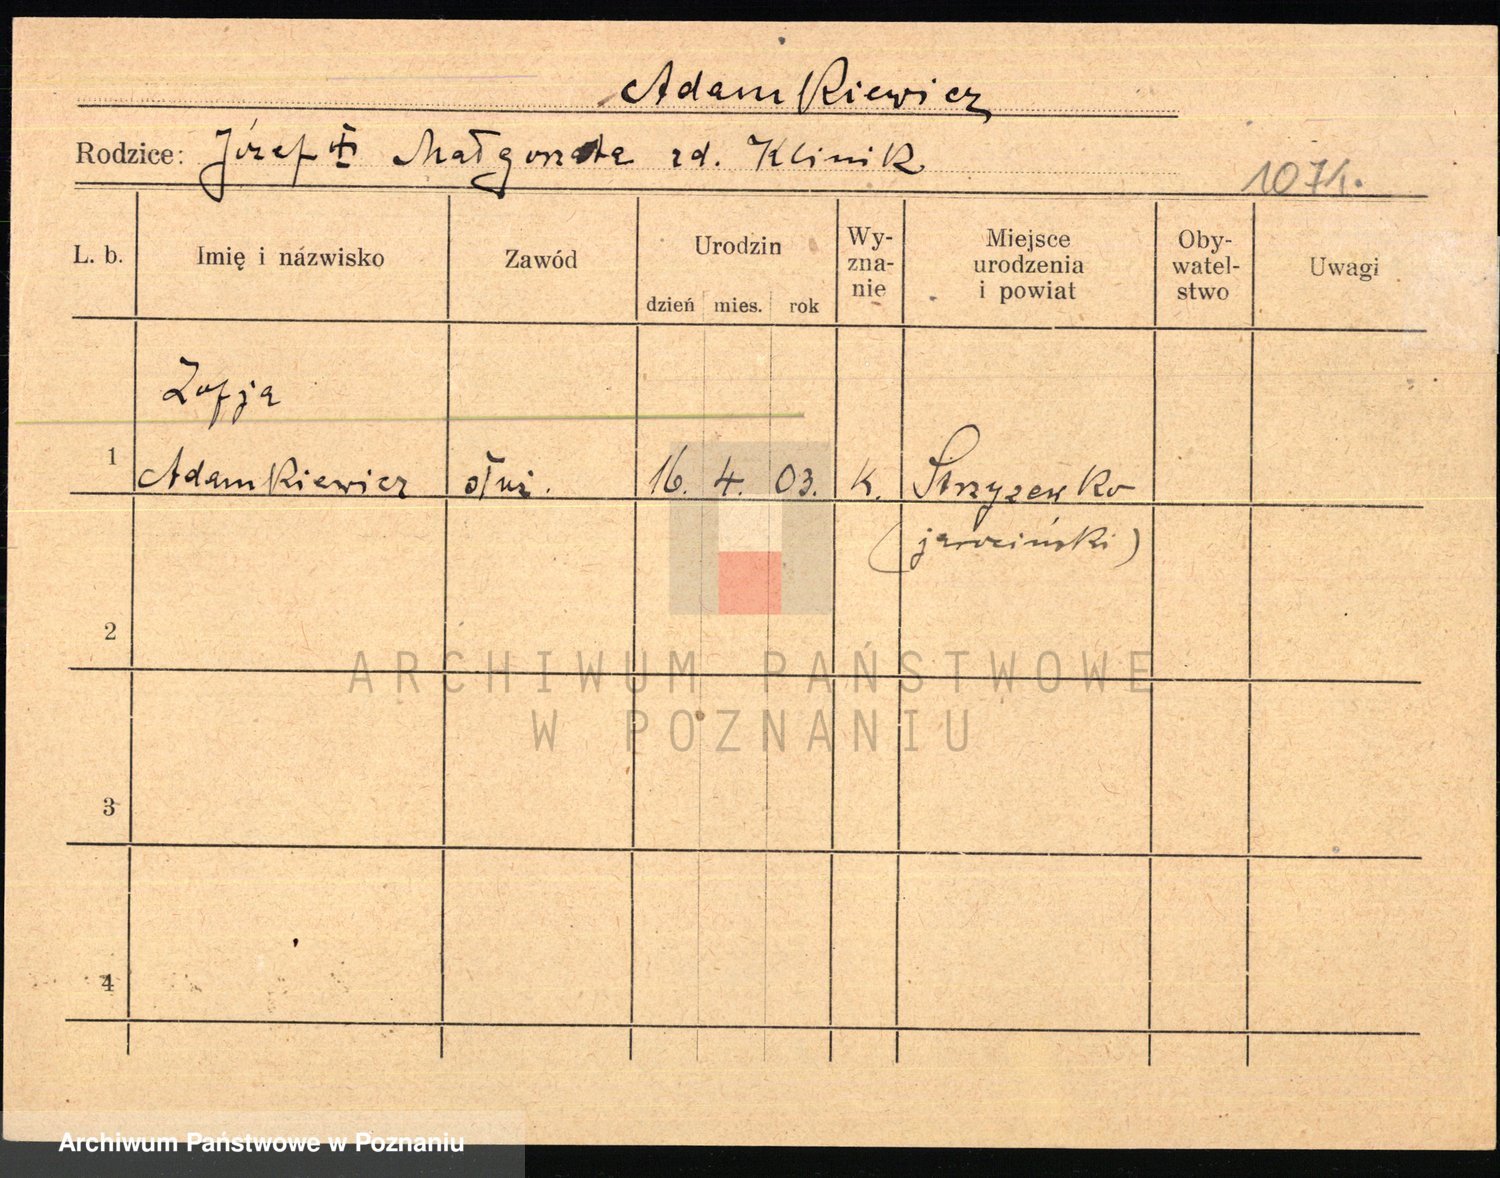 Adamkiewicz
Rodzice: Józef ✝ Małgorzata zd. Klinik
1071.
L. b. Imię i názwisko Zawód Urodzin dzień mies. rok Wy-zna-nie Miejsce urodzenia i powiat Oby-watel-stwo Uwagi
Zofja
1 Adamkiewicz służ. 16. 4. 03. k. Strzyżewko
(jarociński)
2
ARCHIWUM PAŃSTWOWE
W POZNANIU
3
4
Archiwum Państwowe w Poznaniu